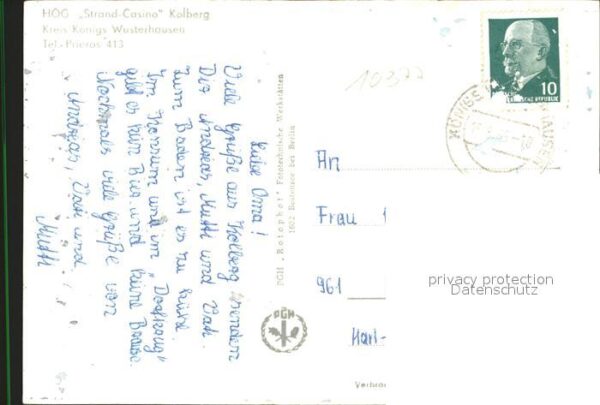 HOG „Strand-Casino" Kolberg
Kreis Königs Wusterhausen
Tel. Prieros 413
Liebe Oma!
Viele Grüße aus Kolberg senden
Dir Andreas, Mutti und Vati.
Zum Baden ist es zu kühl.
Im Konsum und im „Dorfkrug"
gibt es kein Bier und keine Brause.
Nochmals viele Grüße von
Andreas, Vati und
Mutti
PGH „Rotophot" Fototechnische Werkstätten
1602 Bestensee bei Berlin
PGH
10377
10
DEUTSCHE DEMOKRATISCHE REPUBLIK
KÖNIGS
HAUSEN
An
Frau
961
Karl-
privacy protection
Datenschutz